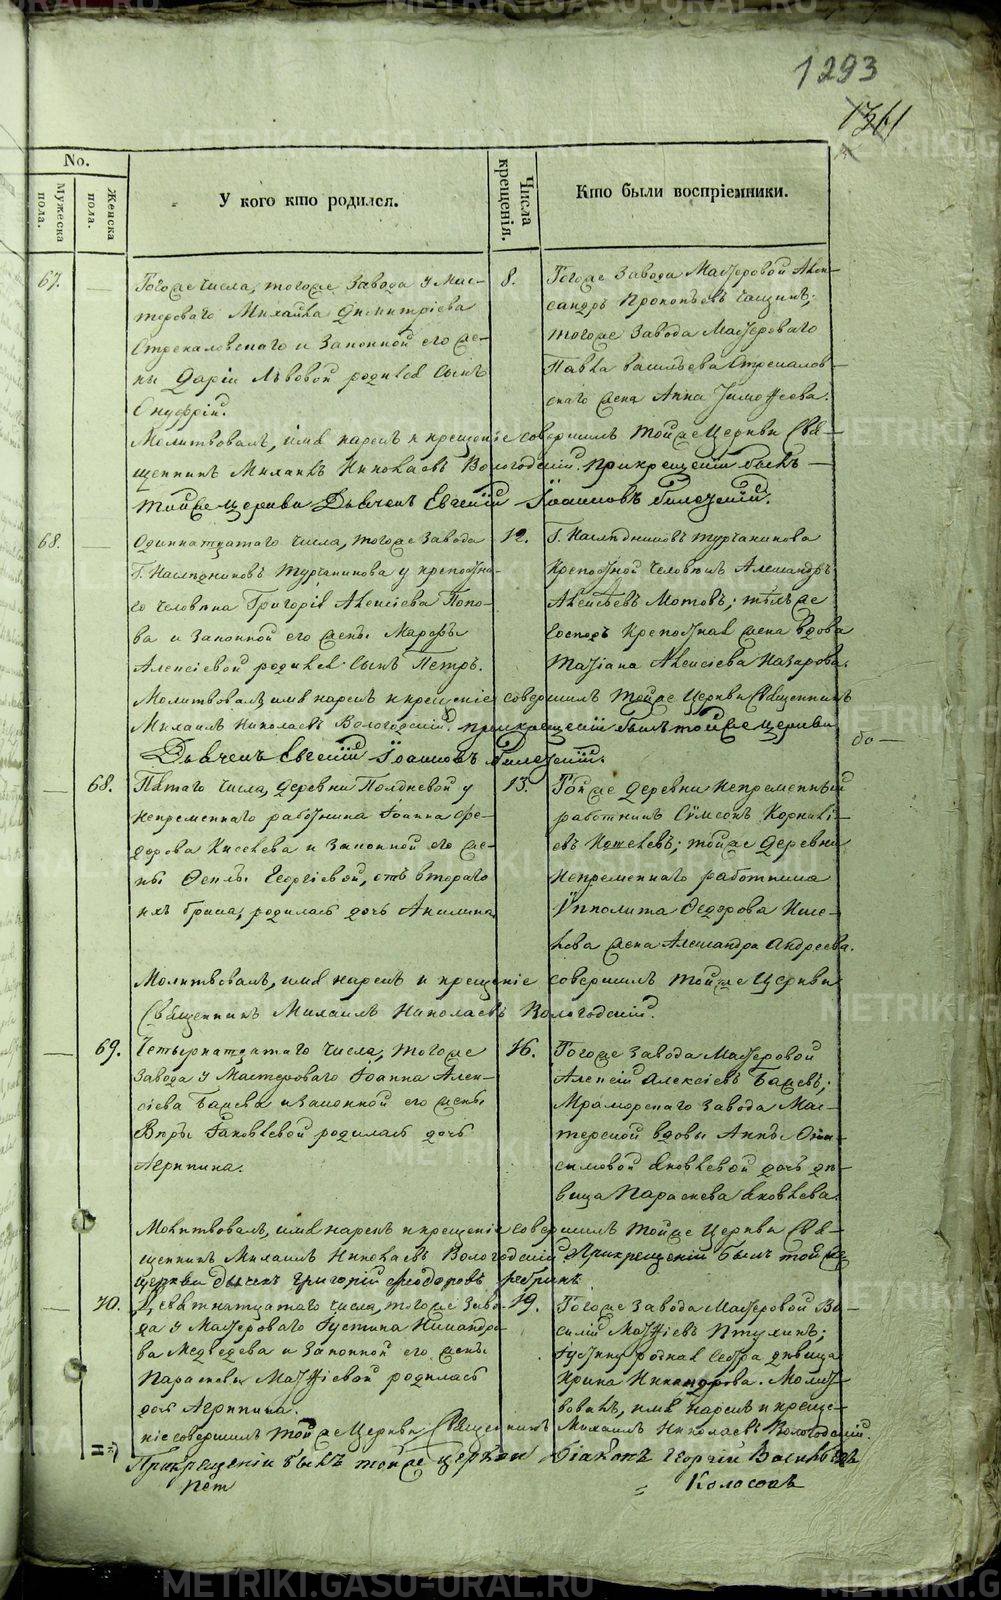 METRIKI.GASO-URAL.RU
1293
1311
No.
Мужеска пола.
Женска пола.
У кого кто родился.
Числа крещенія.
Кто были воспріемники.
67.
Тогоже числа, тогоже завода у мас-
тероваго Михаила Димитріева
Стрекаловскаго и законной его же-
ны Даріи Львовой родился сынъ
Онуфрій.
8.
Тогоже завода мастеровой Алек-
сандръ Прокопьевъ
тогоже завода мастероваго
Павла Васильева Стрекалов-
скаго жена Анна Тимоѳеева.
Молитвовалъ, имя нарекъ и крещеніе совершилъ тойже церкви Свя-
щенникъ Михаилъ Николаевъ Вологодскій. При крещеніи былъ
тойже церкви Дьячекъ Евгеній Іоанновъ
68.
Одиннатцатаго числа, тогоже завода
Г. Наслѣдниковъ Турчанинова у крѣпостна-
го человѣка Григорія Алексіева Попо-
ва и законной его жены Марѳы
Алексіевой родился сынъ Петръ.
12.
Г. Наслѣдниковъ Турчанинова
крѣпостной человѣкъ Александръ
Алексѣевъ Мотовъ; тѣхъ же
Господъ крѣпостная жена вдова
Татіана Алексіева Назарова.
Молитвовалъ имя нарекъ и крещеніе совершилъ тойже церкви Священникъ
Михаилъ Николаевъ Вологодскій. При крещеніи былъ тойже церкви
Дьячекъ Евгеній Іоанновъ
68.
Пятаго числа, деревни Полдневой у
непременнаго работника Іоанна Ѳе-
дорова Киселева и законной его же-
ны Ѳеклы Георгіевой, отъ втораго
ихъ брака, родилась дочь Акилина
13.
Тойже деревни непременный
работникъ Сѵмеонъ Корнилі-
евъ тойже деревни
непременнаго работника
Ѵпполита Ѳедорова Кисе-
лева жена Александра Андреева.
Молитвовалъ, имя нарекъ и крещеніе совершилъ тойже церкви
Священникъ Михаилъ Николаевъ Вологодскій.
69.
Четырнатцатаго числа, тогоже
завода у мастероваго Іоанна Алек-
сіева и законной его жены
Вѣры Іаковлевой родилась дочь
Агрипина.
16.
Тогоже завода мастеровой
Алексій Алексіевъ
Мраморскаго завода мас-
терской вдовы Анны Они-
симовой Яковлевой дочь дѣ-
вица Параскева Яковлева.
Молитвовалъ, имя нарекъ и крещеніе совершилъ тойже церкви Свя-
щенникъ Михаилъ Николаевъ Вологодскій. При крещеніи былъ тойже
церкви дьячекъ Григорій Ѳеодоровъ
70.
Девятнатцатаго числа, тогоже заво-
да у мастероваго Густина Никандро-
ва Медведева и законной его жены
Параскевы Матѳіевой родилась
дочь Агрипина.
19.
Тогоже завода мастеровой Ва-
силій Матѳіевъ Птухинъ;
Густину родная сестра дѣвица
Ирина Никандрова. Молит-
вовалъ, имя нарекъ и креще-
ніе совершилъ тойже церкви Священникъ Михаилъ Николаевъ Вологодскій.
При крещеніи былъ тойже церкви Діаконъ Георгій Васильевъ
Колосовъ